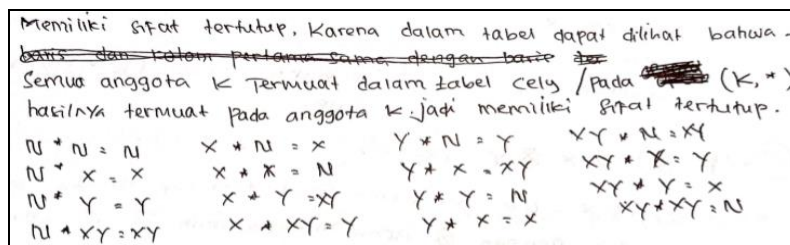 Memiliki sifat tertutup, Karena dalam tabel dapat dilihat bahwa
baris dan kolom pertama sama dengan baris
Semua anggota K termuat dalam tabel cely / pada (K, *)
hasilnya termuat pada anggota K. jadi memiliki sifat tertutup.
N * N = N X * N = X Y * N = Y XY * N = XY
N * X = X X * X = N Y * X = XY XY * X = Y
N * Y = Y X * Y = XY Y * Y = N XY * Y = X
N * XY = XY X * XY = Y Y * X = X XY * XY = N